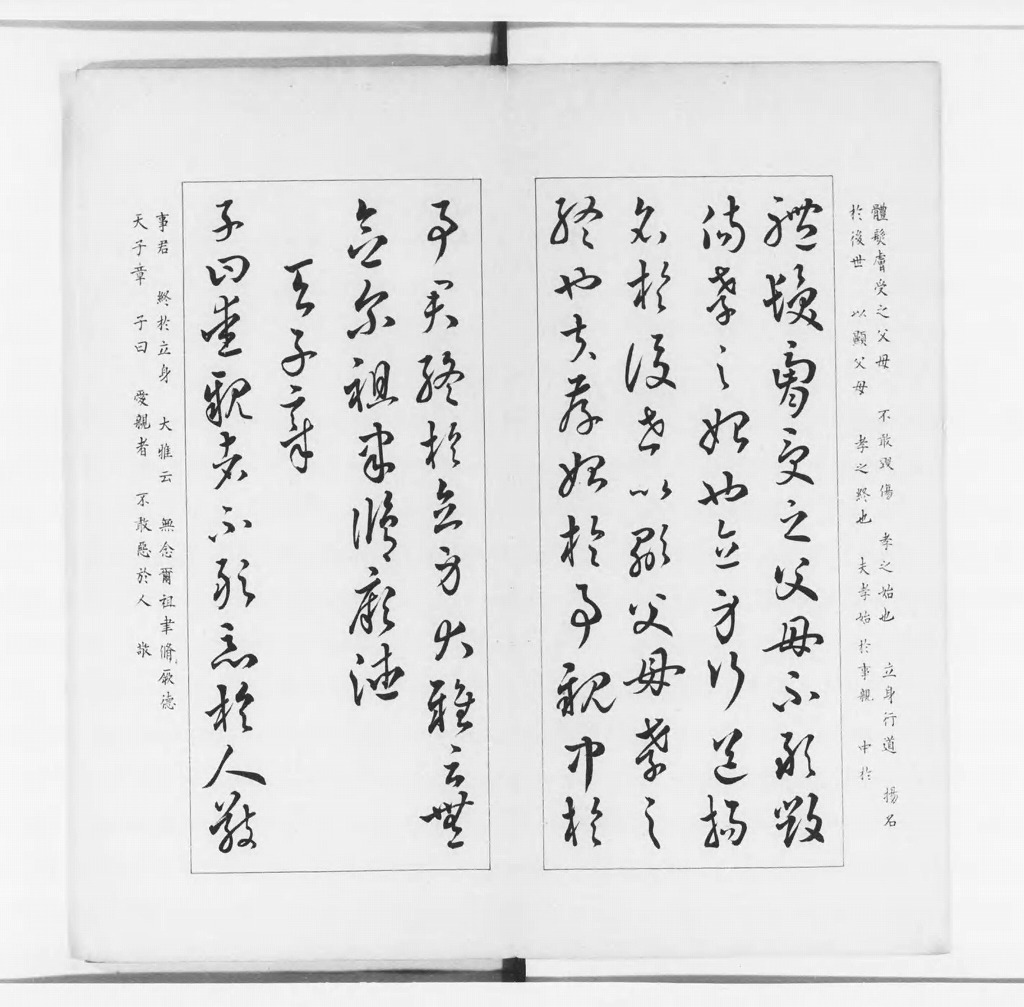 體髮膚受之父母 不敢毀傷 孝之始也 立身行道 揚名
於後世 以顯父母 孝之終也 夫孝始於事親 中於
體髮膚受之父母不敢毀
傷孝之始也立身行道揚
名於後世以顯父母孝之
終也夫孝始於事親中於
事君終於立身大雅云無
念尔祖聿脩厥德
天子章
子曰愛親者不敢惡於人敬
事君 終於立身 大雅云 無念爾祖聿脩厥德
天子章 子曰 愛親者 不敢惡於人 敬